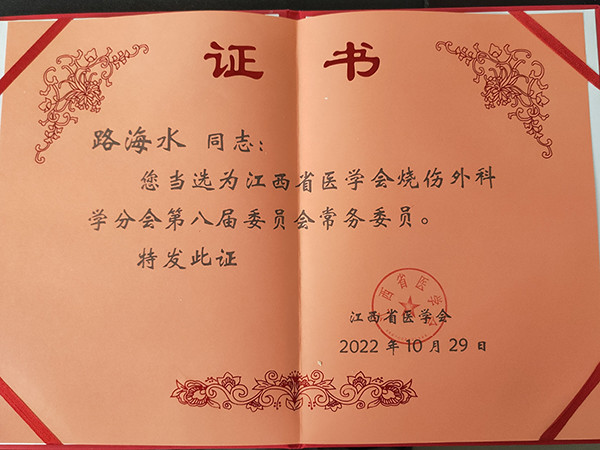 证书
路海水 同志：
您当选为江西省医学会烧伤外科
学分会第八届委员会常务委员。
特发此证
江西省医学会
2022 年 10 月 29 日